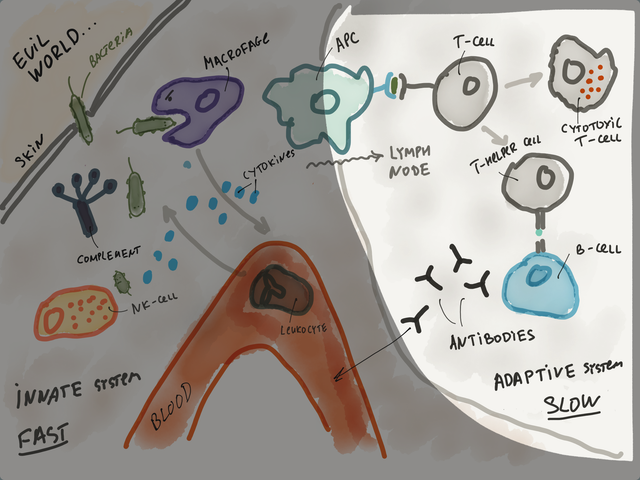 EVIL
WORLD...
BACTERIA
SKIN
MACROFAGE
APC
T-CELL
CYTOTOXIC
T-CELL
CYTOKINES
LYMPH
NODE
T-HELPER CELL
COMPLEMENT
NK-CELL
LEUKOCYTE
B-CELL
ANTIBODIES
INNATE system
FAST
BLOOD
ADAPTIVE system
SLOW